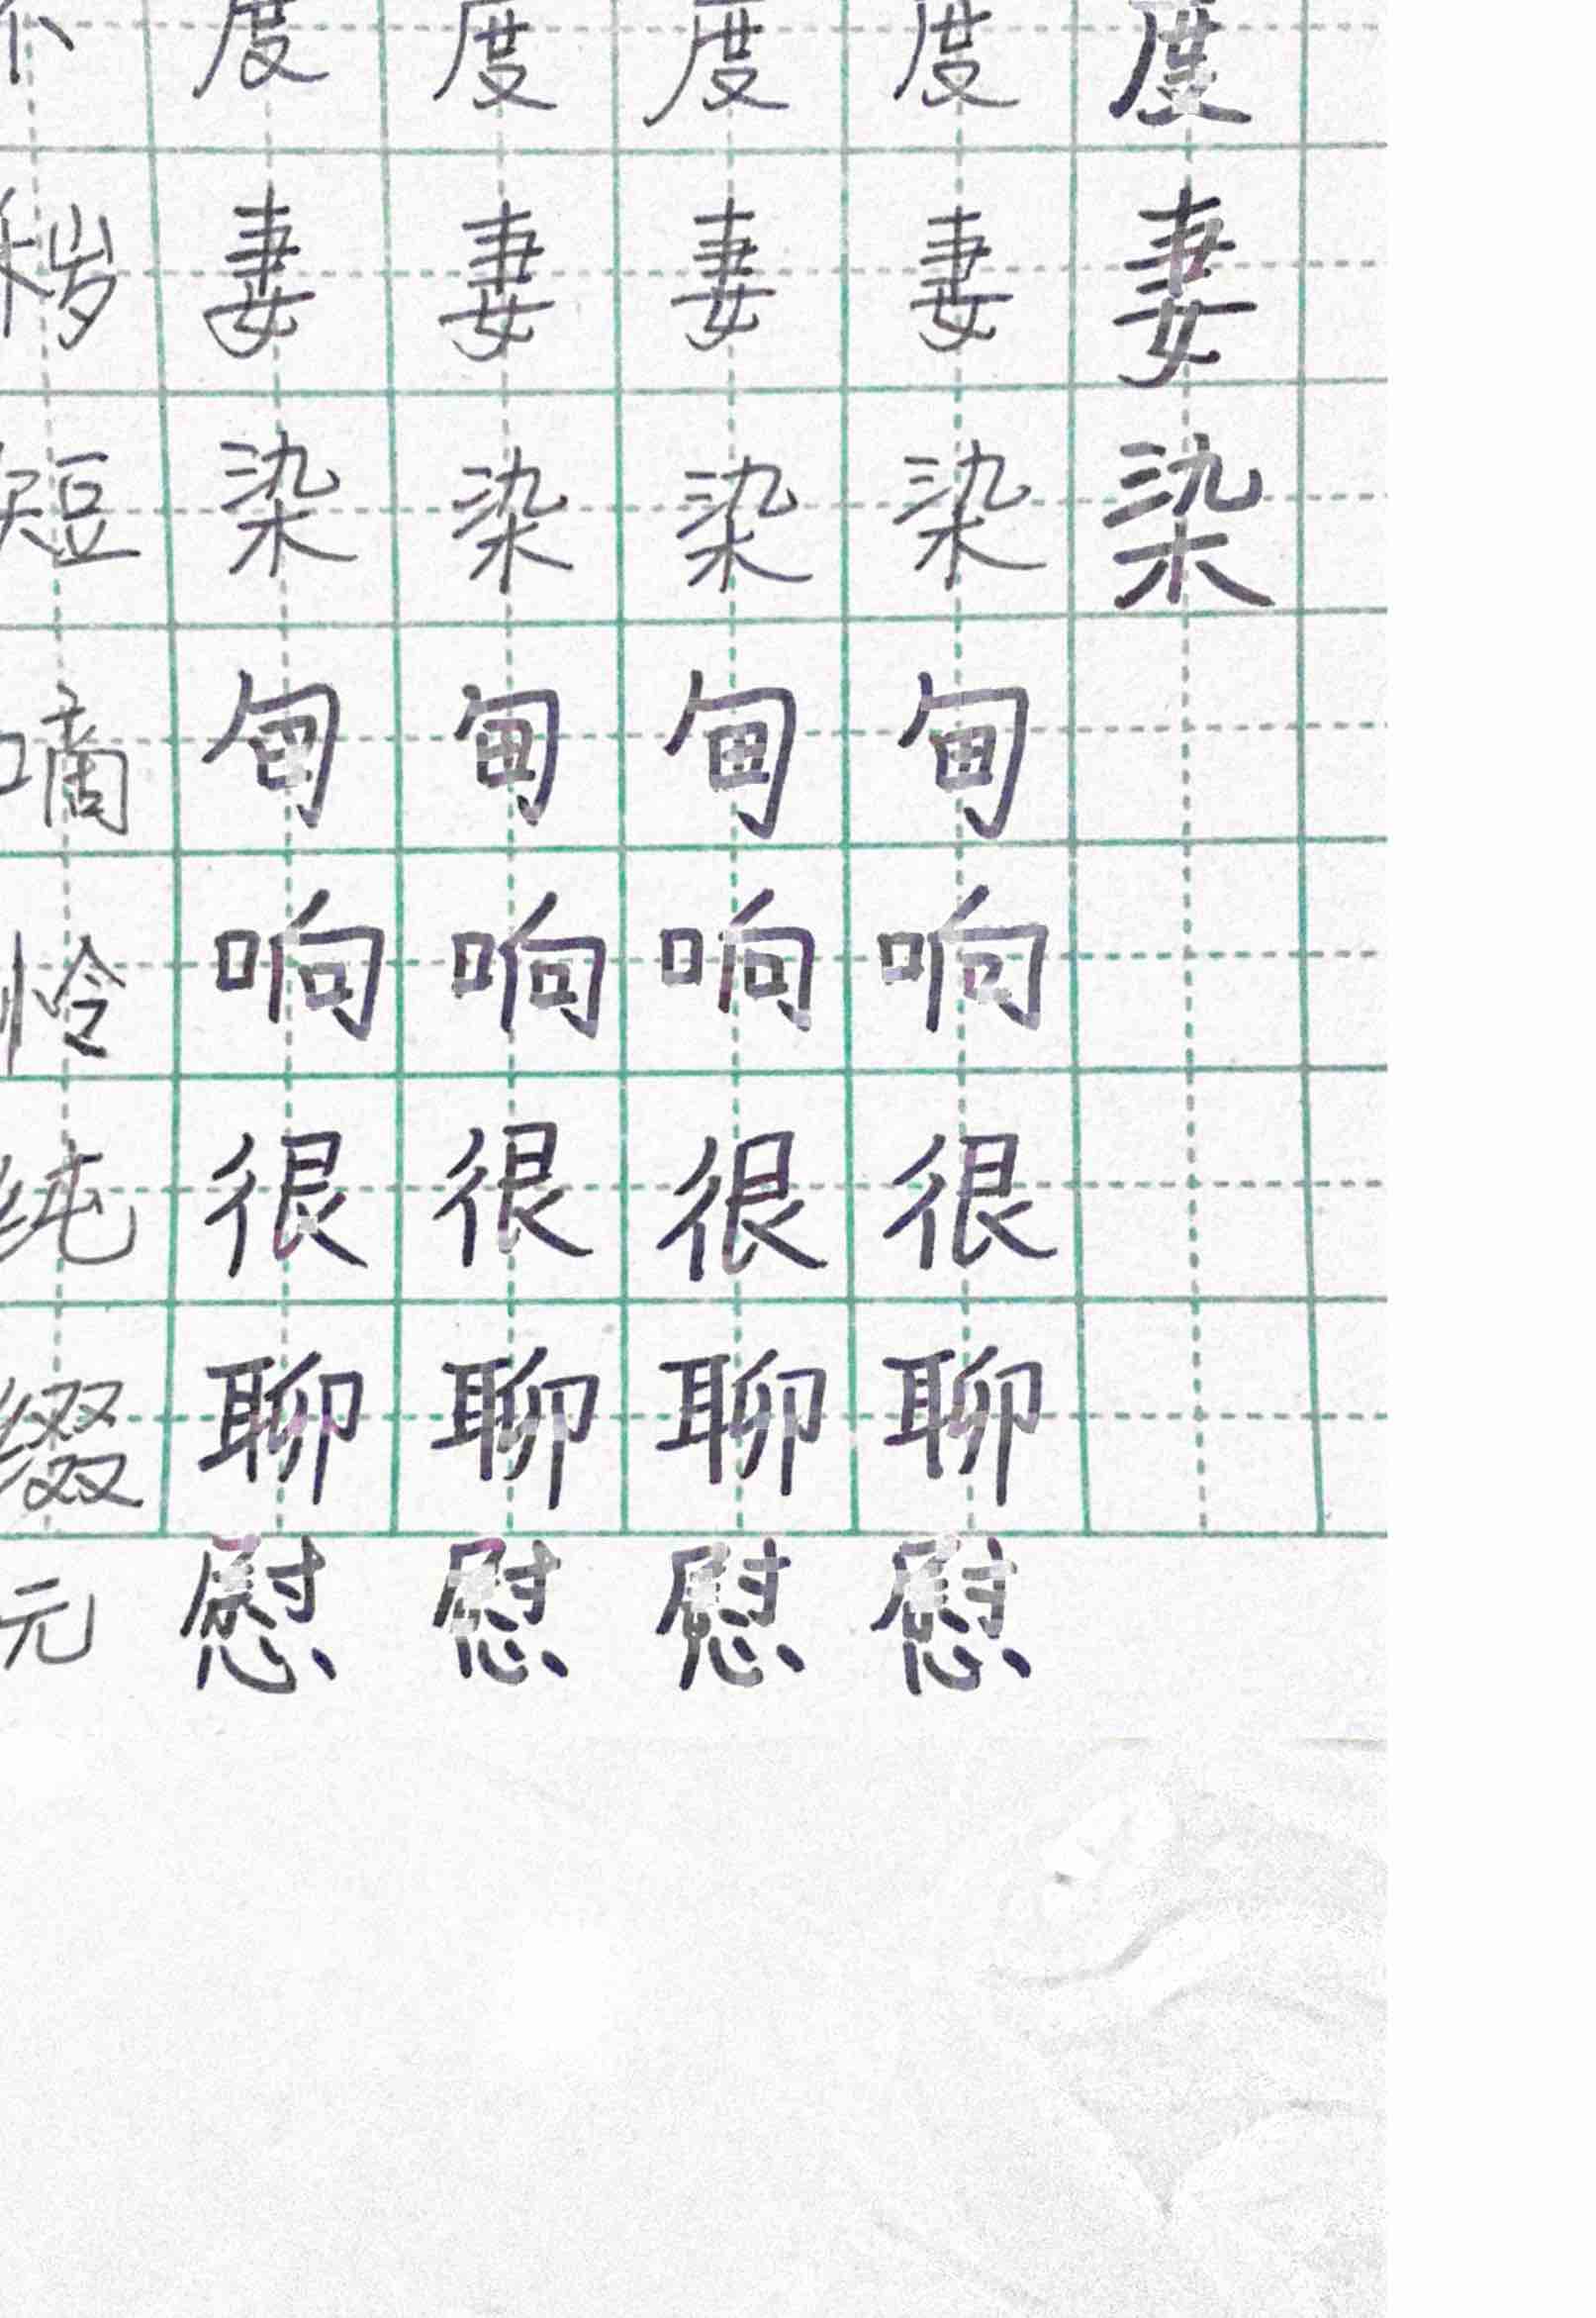 度 度 度 度 度
秽 妻 妻 妻 妻 妻
短 染 染 染 染 染
嘀 甸 甸 甸 甸
怜 响 响 响 响
纯 很 很 很 很
缀 聊 聊 聊 聊
元 慰 慰 慰 慰